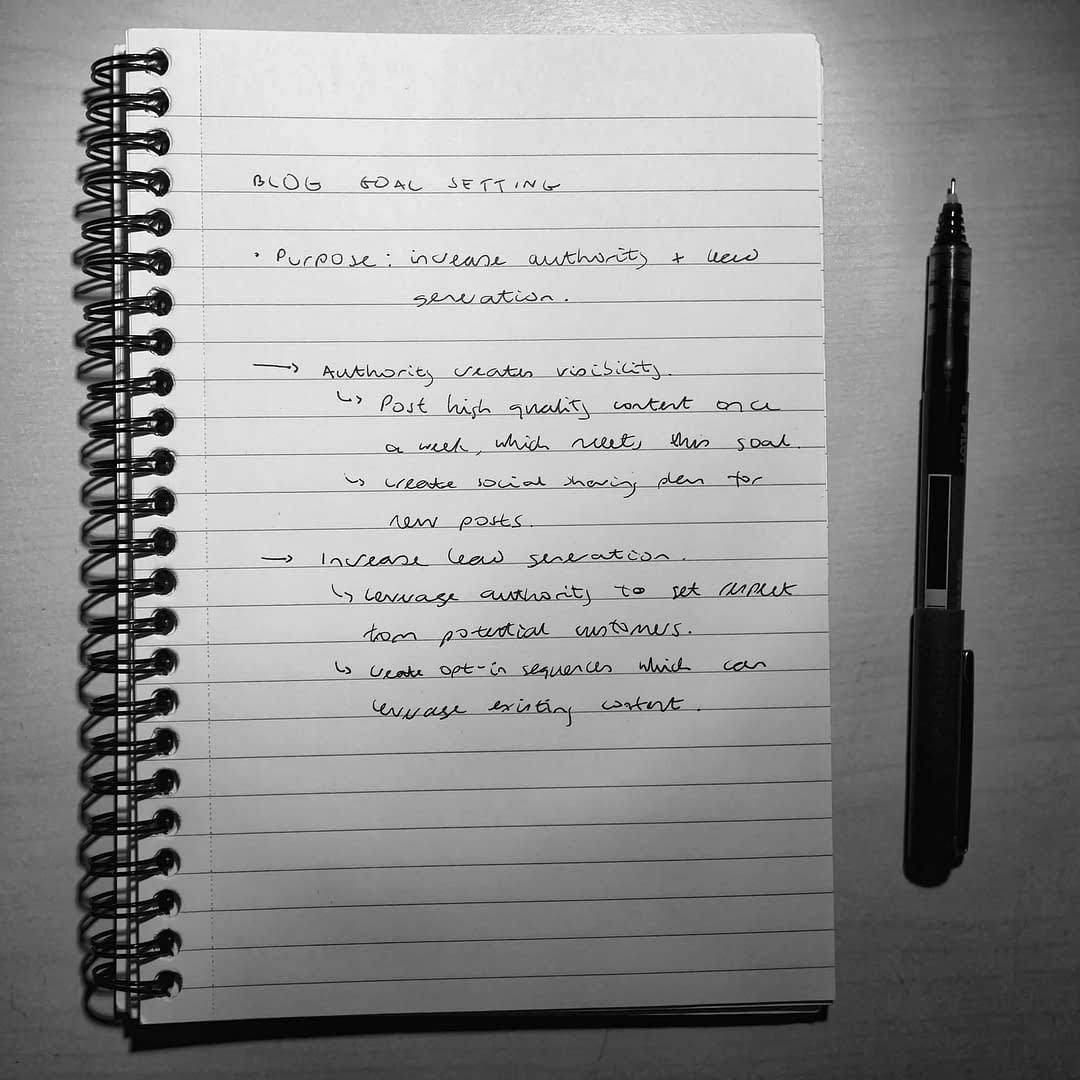 BLOG GOAL SETTING
• Purpose: increase authority + lead
generation.
→ Authority creates visibility.
↳ Post high quality content once
a week, which meets this goal.
↳ create social sharing plan for
new posts.
→ Increase lead generation.
↳ Leverage authority to get respect
from potential customers.
↳ create opt-in sequences which can
leverage existing content.
PILOT